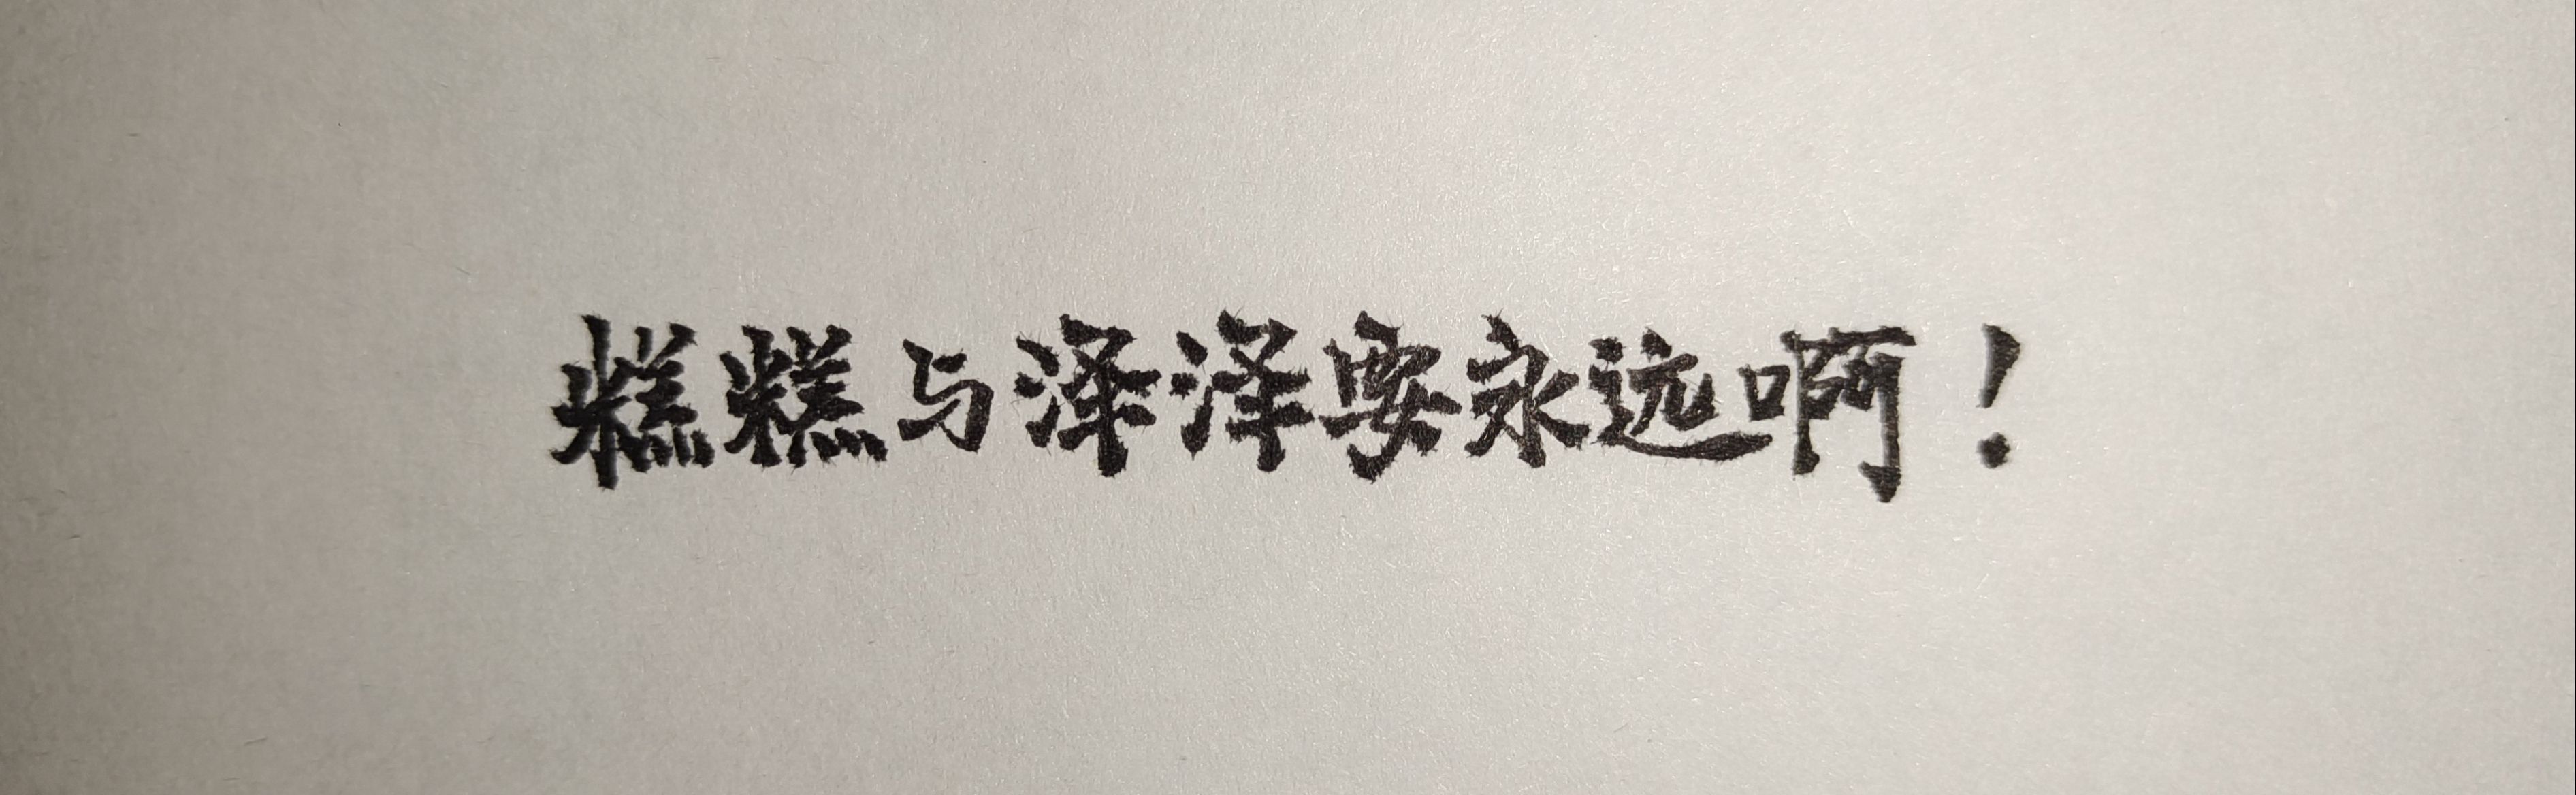 糕糕与泽泽要永远啊！